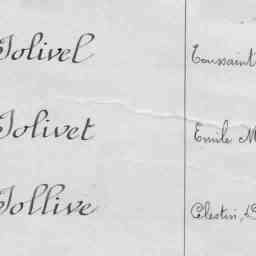 Jolivel Toussaint
Jolivet Emile M
Jollive Célestin, L